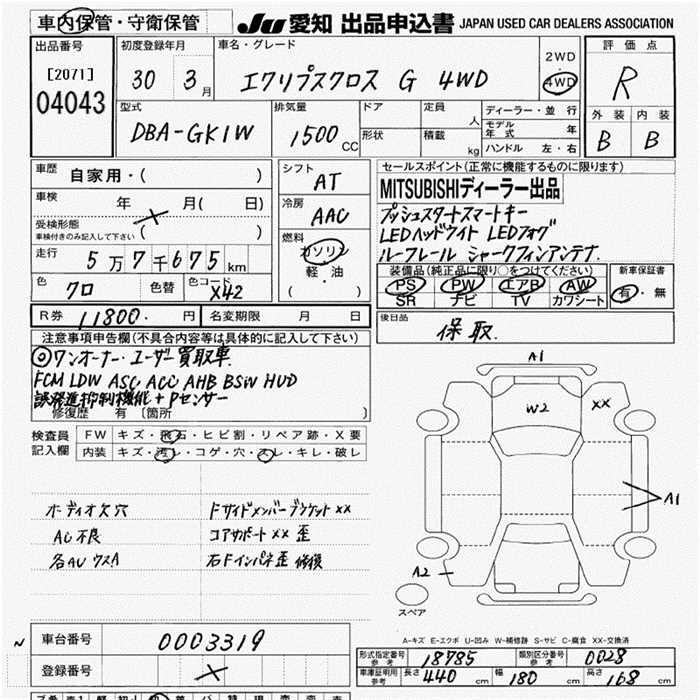 車内保管・守衛保管
JU 愛知 出品申込書 JAPAN USED CAR DEALERS ASSOCIATION
出品番号
[2071]
04043
初度登録年月
30 3月
車名・グレード
エクリプスクロス G 4WD
2WD
・
4WD
評価点
R
外装 内装
B B
型式
DBA-GK1W
排気量
1500 CC
ドア
形状
定員 人
積載 kg
ディーラー・並行
モデル年式 年
ハンドル 左・右
車歴
自家用・( )
車検 年 月( 日)
受検形態
車検付きのみ記入して下さい ( )
走行
5万7千675 km
色
クロ
色替
色コード
X42
シフト
AT
冷房
AAC
燃料
ガソリン
軽・油
( )
セールスポイント(正常に機能するものに限ります)
MITSUBISHIディーラー出品
プッシュスタートスマートキー
LEDヘッドライト LEDフォグ
ルーフレール シャークフィンアンテナ.
装備品(純正品に限り○をつけてください)
PS PW エアB AW
SR ナビ TV カワシート
新車保証書
有・無
R券 11800. 円 名変期限 月 日
後日品
保取.
注意事項申告欄(不具合内容等は具体的に記入して下さい)
◎ワンオーナー・ユーザー買取車
FCM LDW ASC ACC AHB BSW HUD
誤発進抑制機能+Pセンサー
修復歴 有 〔箇所 〕
検査員
記入欄
FW キズ・飛石・ヒビ割・リペア跡・X要
内装 キズ・汚レ・コゲ・穴・スレ・キレ・破レ
ボディオ欠穴
AC不良
各AU ウスA
Fサイドメンバーブラケット××
コアサポート×× 歪
右Fインパネ歪 修復
A1
W2
××
A1
A2
スペア
A-キズ E-エクボ U-凹み W-補修跡 S-サビ C-腐食 XX-交換済
車台番号 0003319
登録番号
形式指定番号
参考
18785
類別区分番号
参考
0028
車庫証明用
参考
長さ 440 cm 幅 180 cm 高さ 168 cm